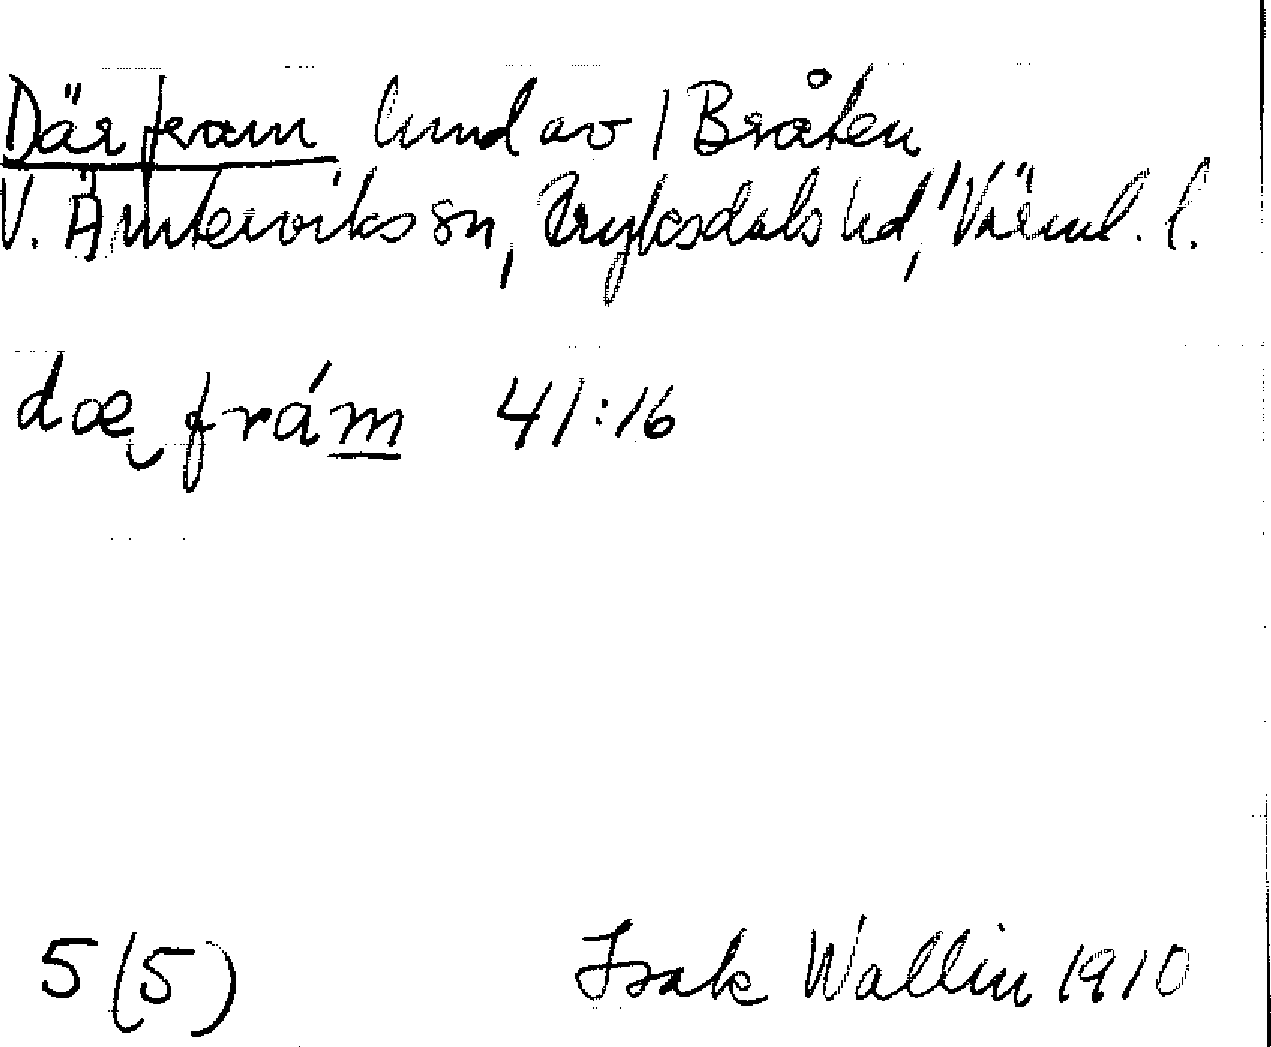 Därfram lund av / Bråten
V. Ämterviks sn, Fryksdals hd, Värml. l.
dæ̨ frám 41:16
5 (5) Isak Wallin 1910